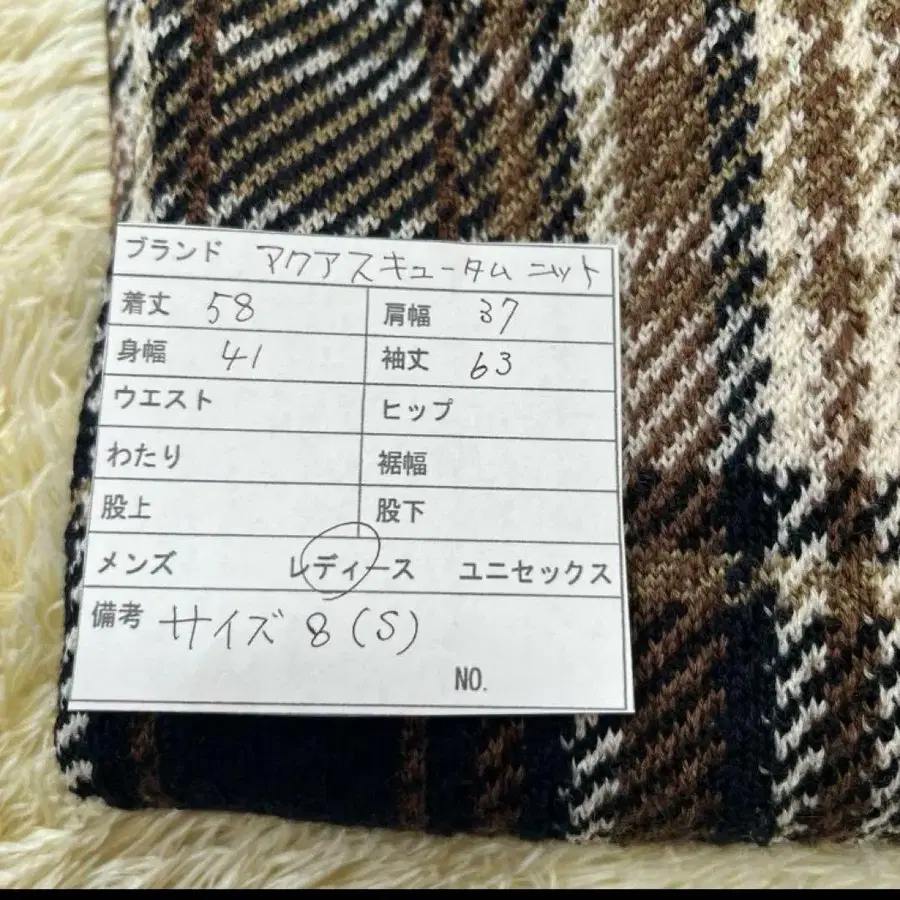 ブランド アクアスキュータム ニット
着丈 58 肩幅 37
身幅 41 袖丈 63
ウエスト ヒップ
わたり 裾幅
股上 股下
メンズ レディース ユニセックス
備考 サイズ 8 (S)
NO.